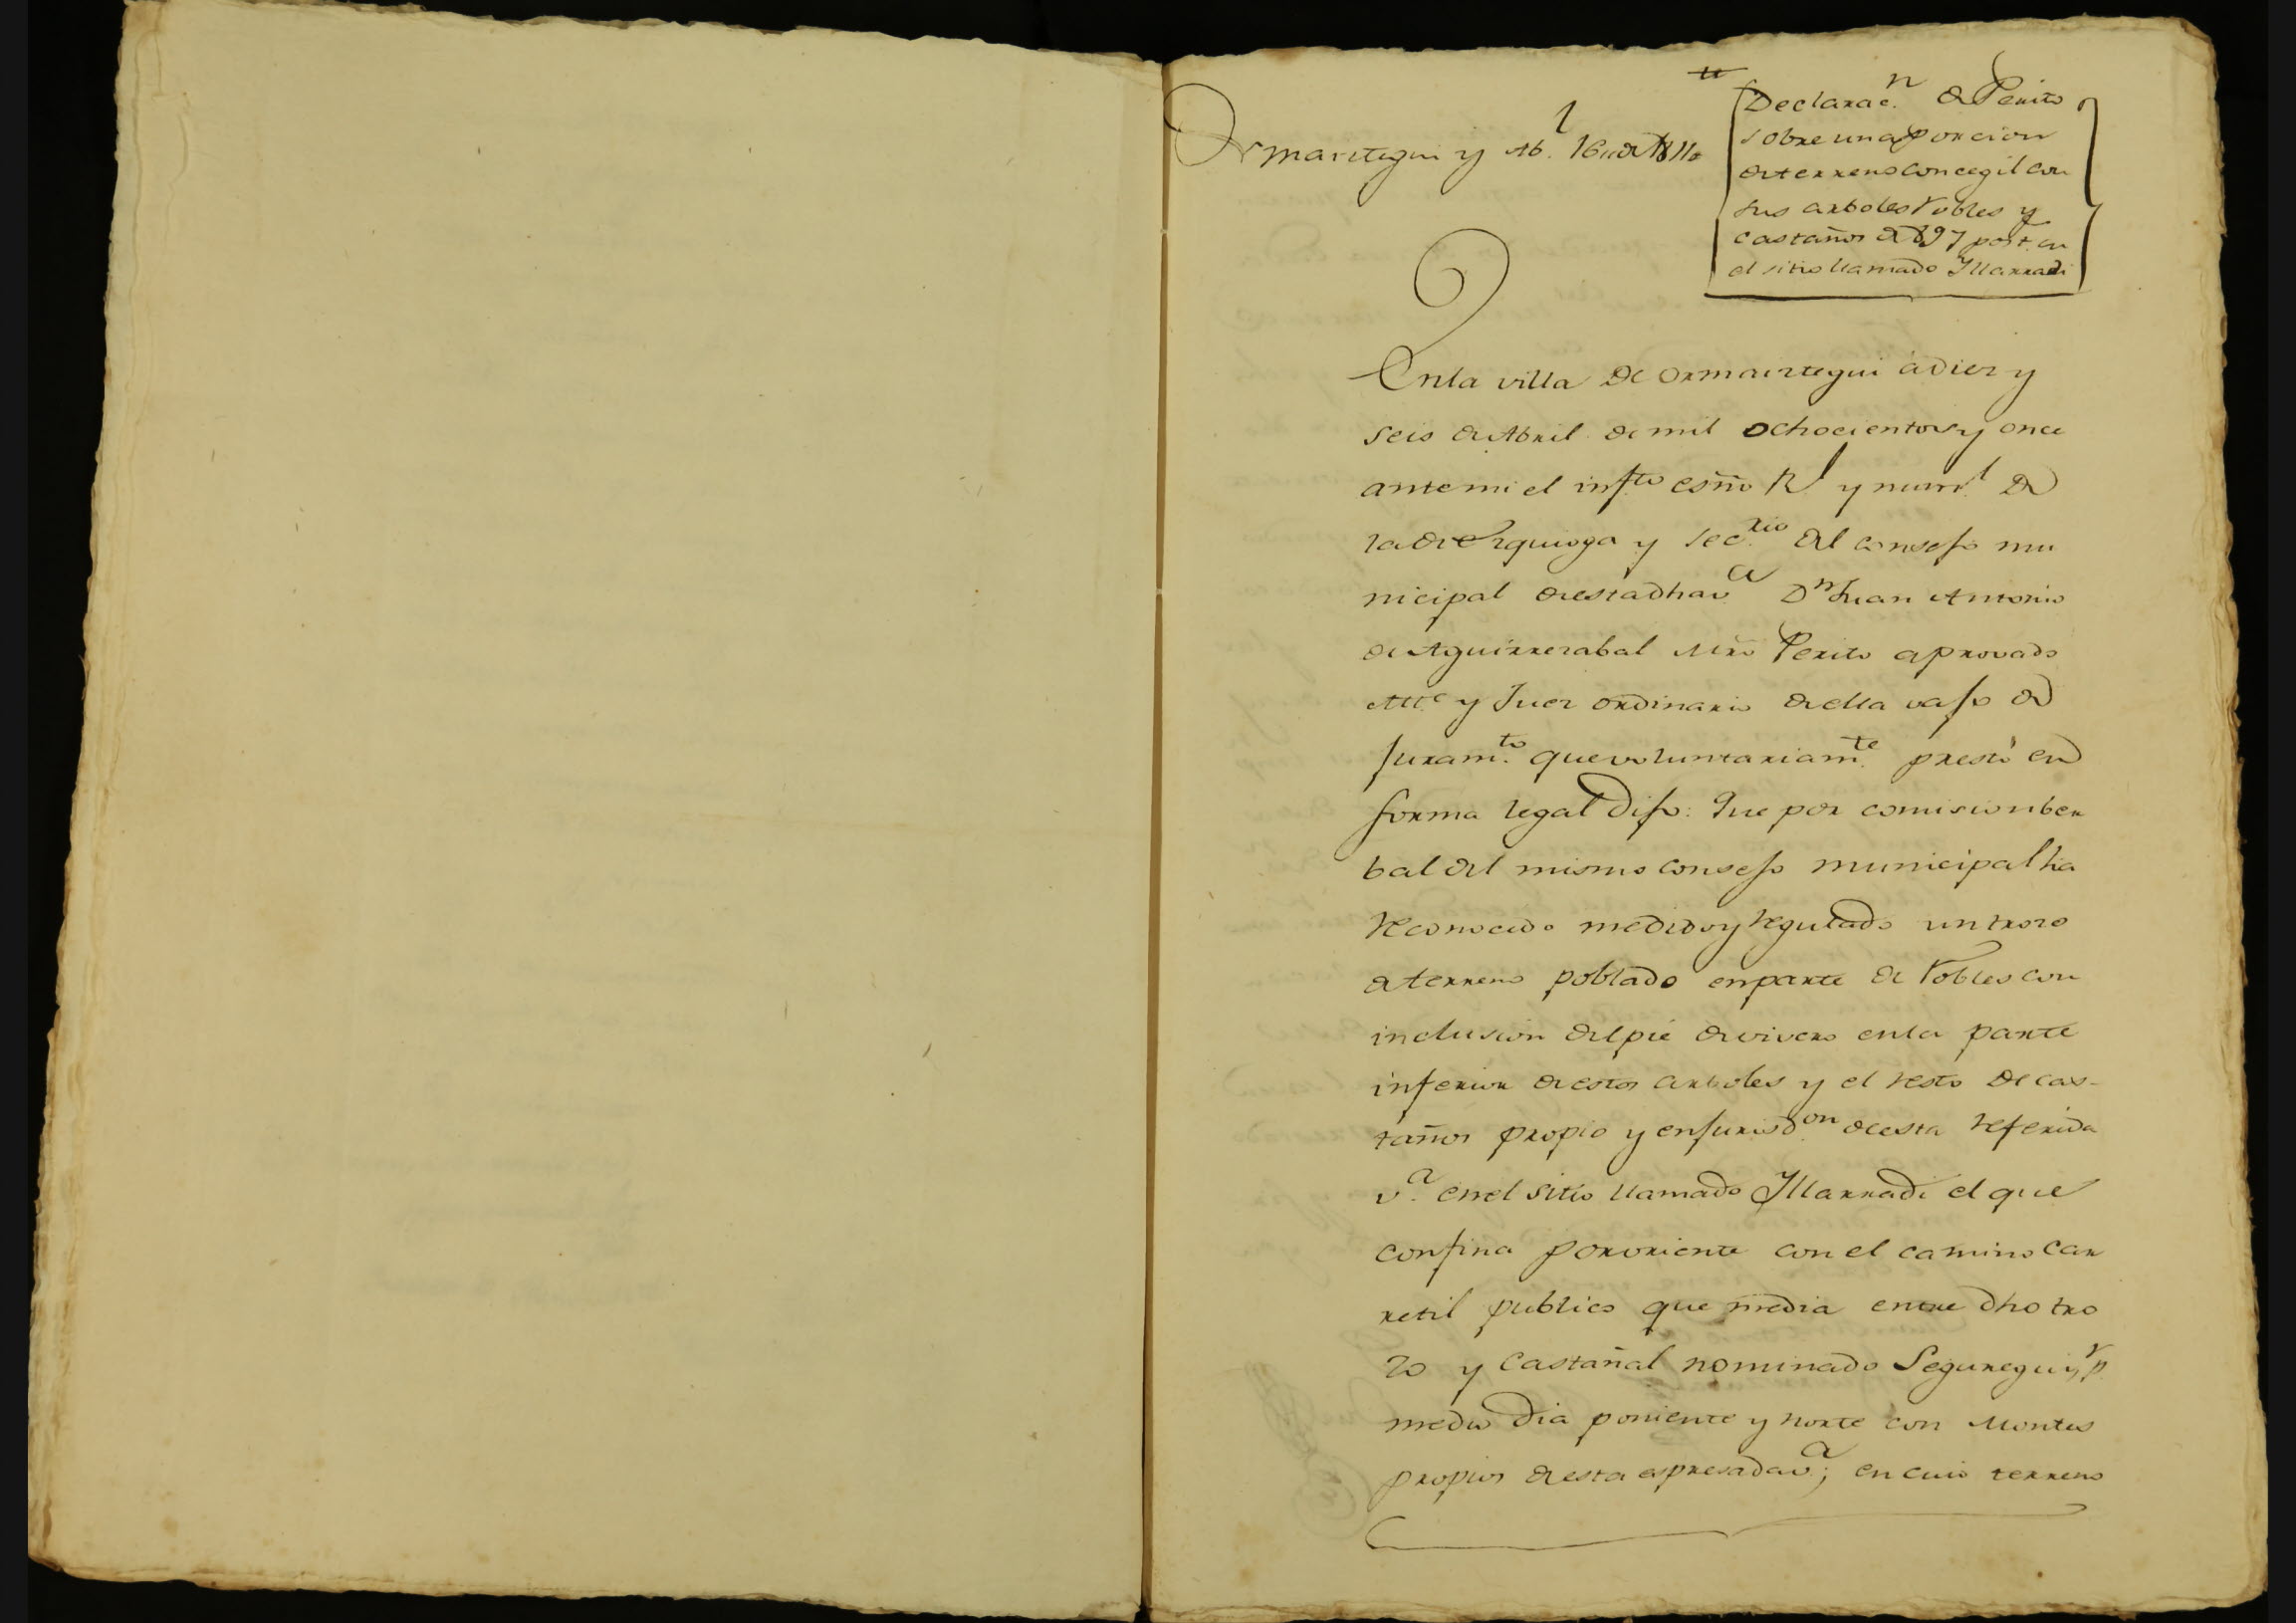 Ormaiztegui y Ab.l 16,, de 1811,,
Declarac.n de Perito
sobre una porcion
de terreno concegil con
sus arboles robles y
castaños de 897 post.s en
el sitio llamado Yllarradi
En la villa de Ormaiztegui à diez y
seis de Abril de mil ochocientos y once
ante mi el inf.to esño R.l y num.l de
la de Ezquioga y sec.rio del consejo mu
nicipal de esta dha v.a D.n Juan Antonio
de Aguirrezabal Mrõ Perito aprovado
Alc.e y Juez ordinario de ella vajo de
juram.to que voluntariam.te prestó en
forma legal Dijo: Que por comision ber
bal del mismo consejo municipal ha
reconocido medido y regulado un trozo
de terreno poblado en parte de robles con
inclusion del pie de vivero en la parte
inferior de estos arboles y el resto de cas-
taños propio y en jurisd.on de esta referida
v.a en el sitio llamado Yllarradi el que
confina por oriente con el camino car
retil publico que media entre dho tro
zo y castañal nominado Seguregui, y p.r
medio dia poniente y norte con Montes
propios de esta espresada v.a; en cuio terreno